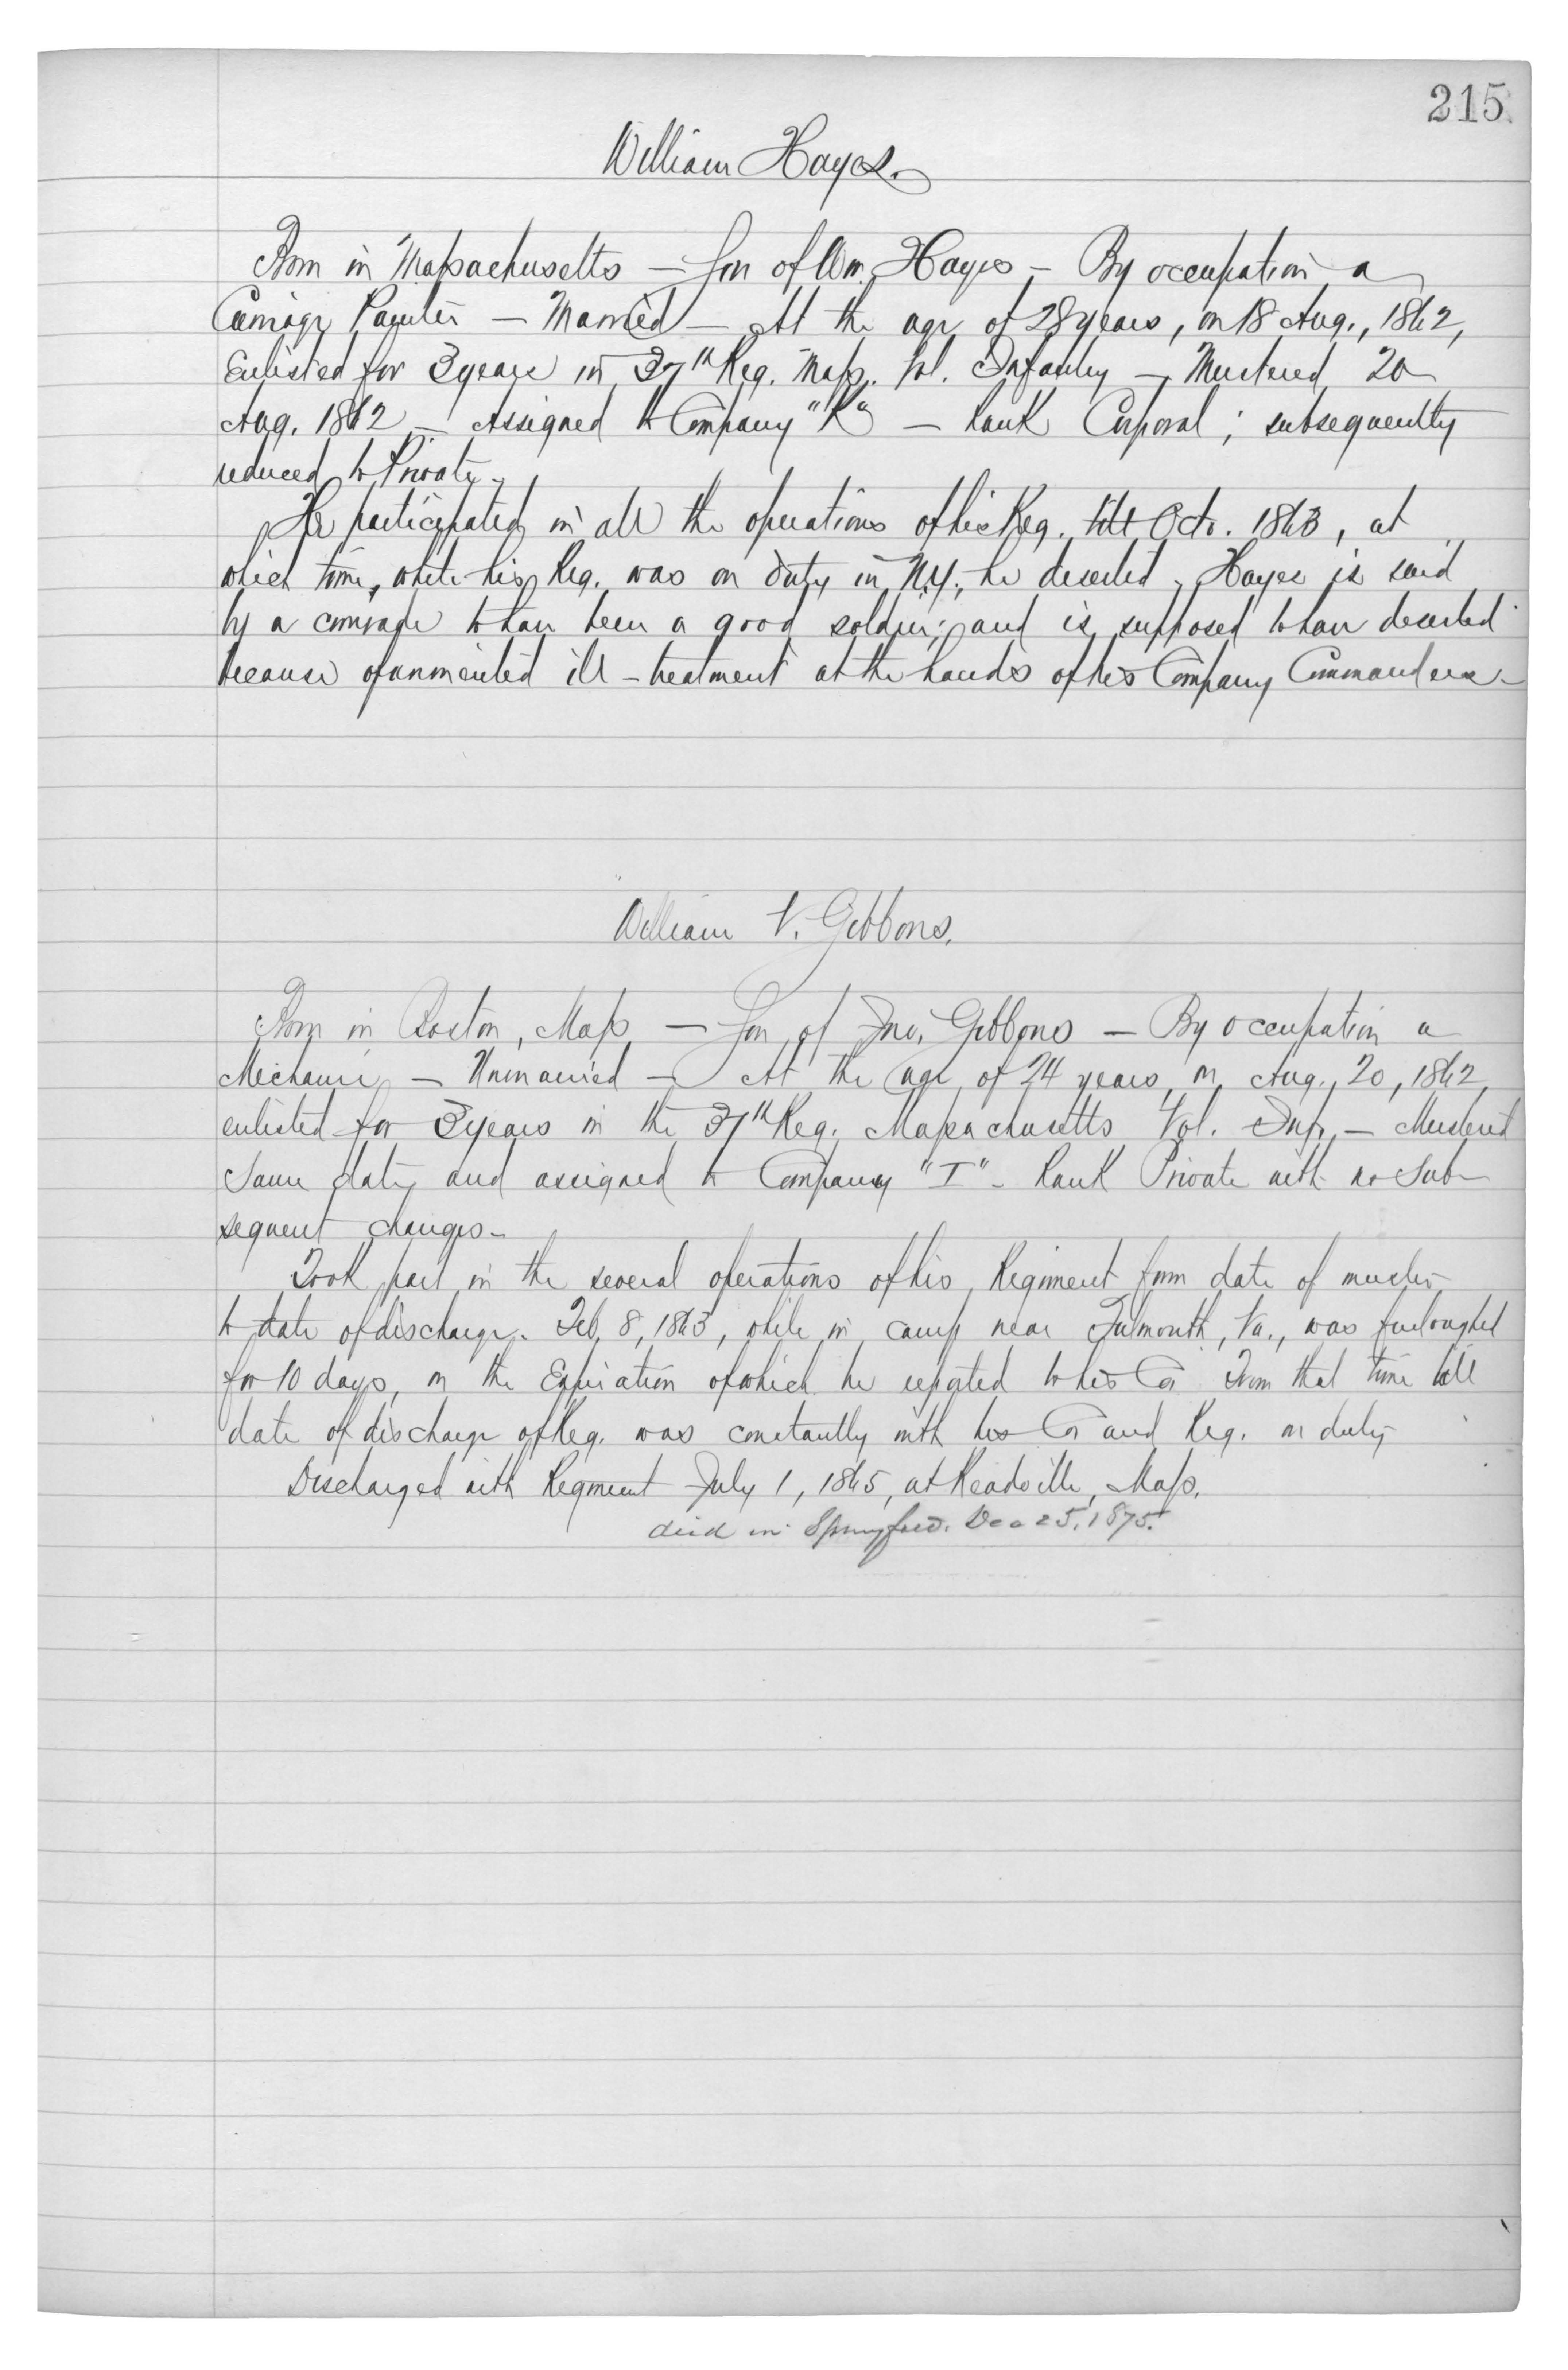 215
William Hayes.
Born in Massachusetts — Son of Wm. Hayes — By occupation a
Carriage Painter — Married — At the age of 28 years, on 18 Aug., 1862,
Enlisted for 3 years in 37th Reg. Mass. Vol. Infantry — Mustered 20
Aug. 1862 — Assigned to Company "K" — Rank Corporal; subsequently
reduced to Private.
He participated in all the operations of his Reg. till Octo. 1863, at
which time, while his Reg. was on duty in N.Y., he deserted. Hayes is said
by a comrade to have been a good soldier; and is supposed to have deserted
because of unmerited ill-treatment at the hands of his Company Commanders.
William V. Gibbons.
Born in Boston, Mass — Son of Jno. Gibbons — By occupation a
Mechanic — Unmarried — At the age of 24 years, on Aug. 20, 1862,
enlisted for 3 years in the 37th Reg. Massachusetts Vol. Inf. — Mustered
Same date and assigned to Company "I" - Rank Private with no Sub-
sequent changes -
Took part in the several operations of his Regiment from date of muster
to date of discharge. Feb. 8, 1863, while in camp near Falmouth, Va., was furloughed
for 10 days, on the Expiration of which he reported to his Co. From that time till
date of discharge of Reg. was constantly with his Co and Reg. on duty -
Discharged with Regiment July 1, 1865, at Readville, Mass.
died in Springfield. Dec 25, 1875.